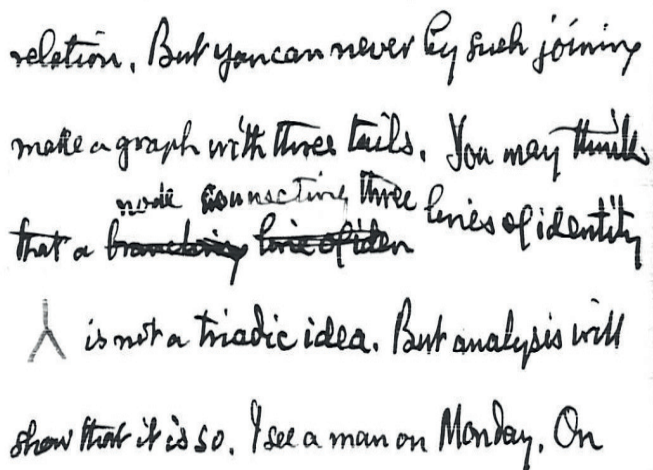 relation. But you can never by such joining
make a graph with three tails. You may think
node connecting three lines of identity
that a branching line of iden
is not a triadic idea. But analysis will
show that it is so. I see a man on Monday. On